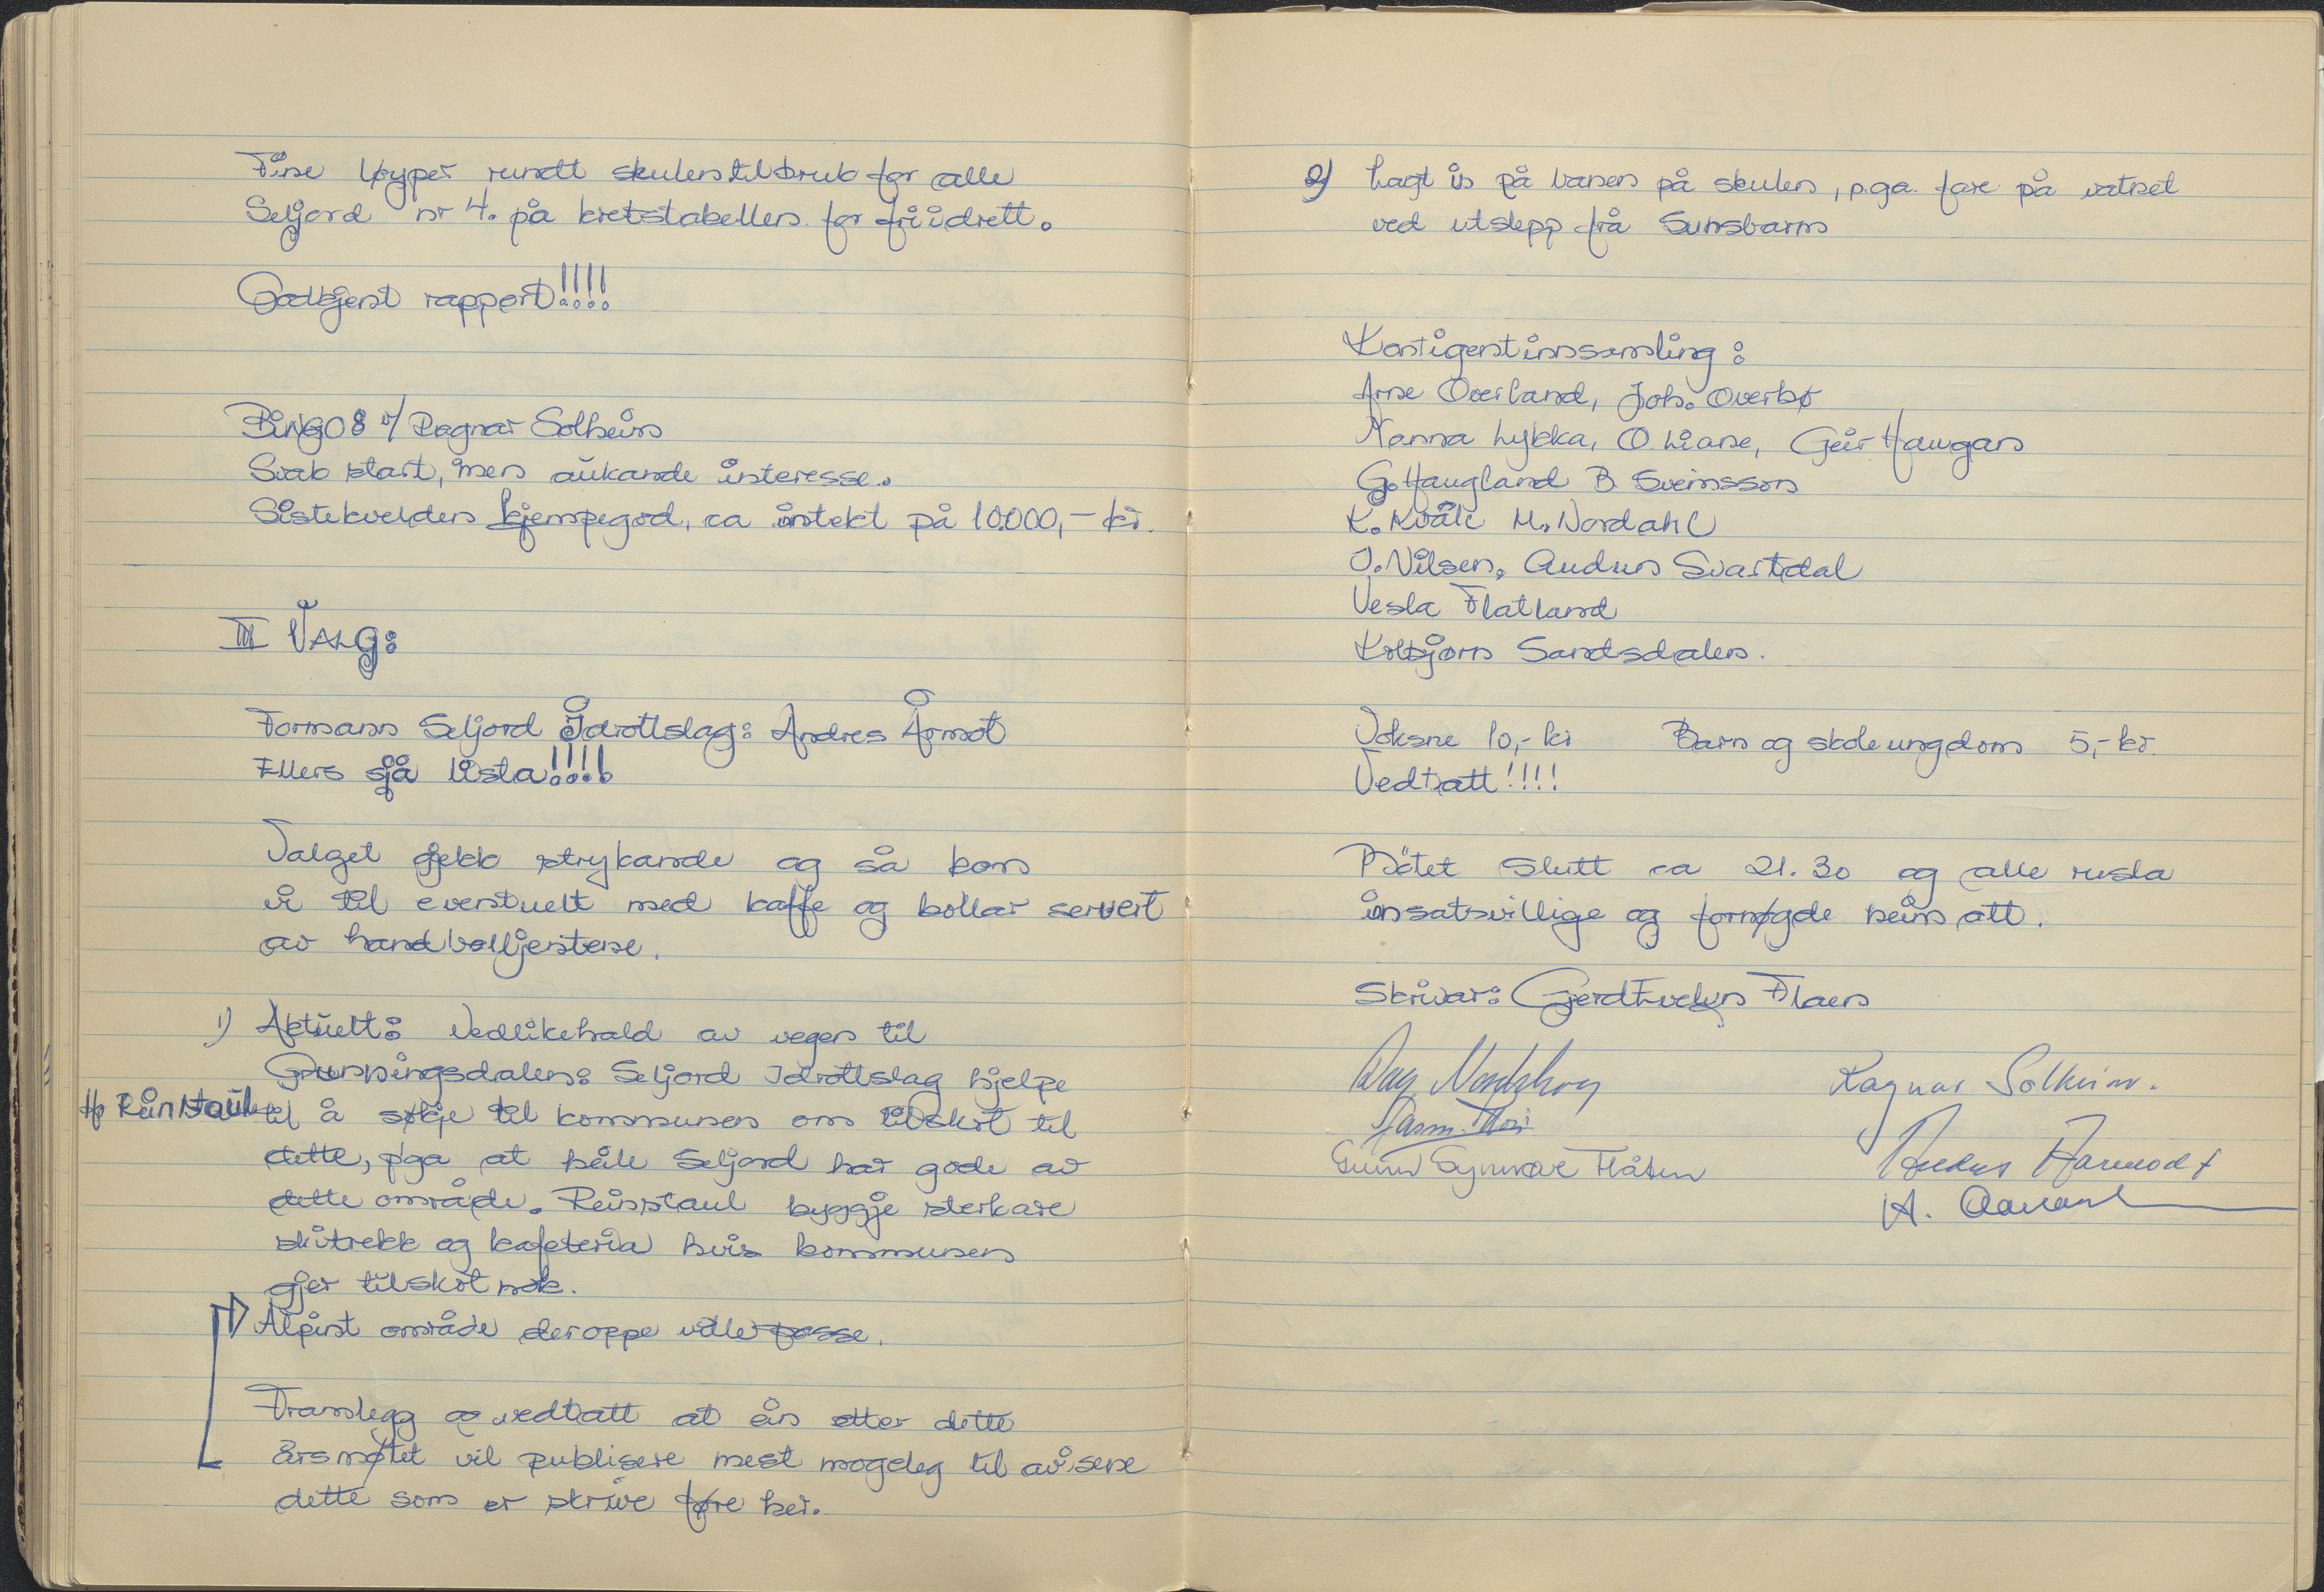 Fine løyper rundt skulen til bruk for alle
Seljord nr 4. på kretstabellen for friidrett.
Godkjent rapport!!!!
BiNGO: v/ Ragnar Solheim
Svak start, men aukande interesse.
Sistekvelden kjempegod, ca inntekt på 10.000,- kr.
III VALG:
Formann Seljord Idrottslag: Andres Årmot
Ellers sjå lista!!!!
Valget gjekk strykande og så kom
vi til eventuelt med kaffe og bollar servert
av handballjentene.
1) Aktuelt: Vedlikehald av vegen til
Grunningsdalen: Seljord Idrottslag hjelpe
til å søkje til kommunen om tilskot til
dette, p'ga at heile Seljord har gode av
dette område. Reinstaul byggje sterkare
skitrekk og kafeteria hvis kommunen
gjer tilskot nok.
Alpint område der oppe ville passe.
Framlegg og vedtatt at ein etter dette
årsmøtet vil publisere mest mogeleg til avisene
dette som er skrive føre her.
2) Lagt is på banen på skulen, p.ga. fare på vatnet
ved utslepp frå Sunsbarm
Kontigentinnsamling:
Arne Overland, Joh. Overbø
Nanna Lykka, O. Liane, Geir Haugan
G. Haugland B. Sveinsson
K. Kvåle M. Nordahl
J. Nilsen, Audun Svartdal
Vesla Flatland
Kolbjørn Sandsdalen.
Voksne 10,- kr Barn og skoleungdom 5,- kr.
Vedtatt!!!!
Møtet slutt ca 21.30 og alle rusla
insatsvillige og fornøgde heim att.
Skrivar: Gerd Evelyn Flaen
Dag Nordskog Ragnar Solheim.
Gunn Synnøve Flåten